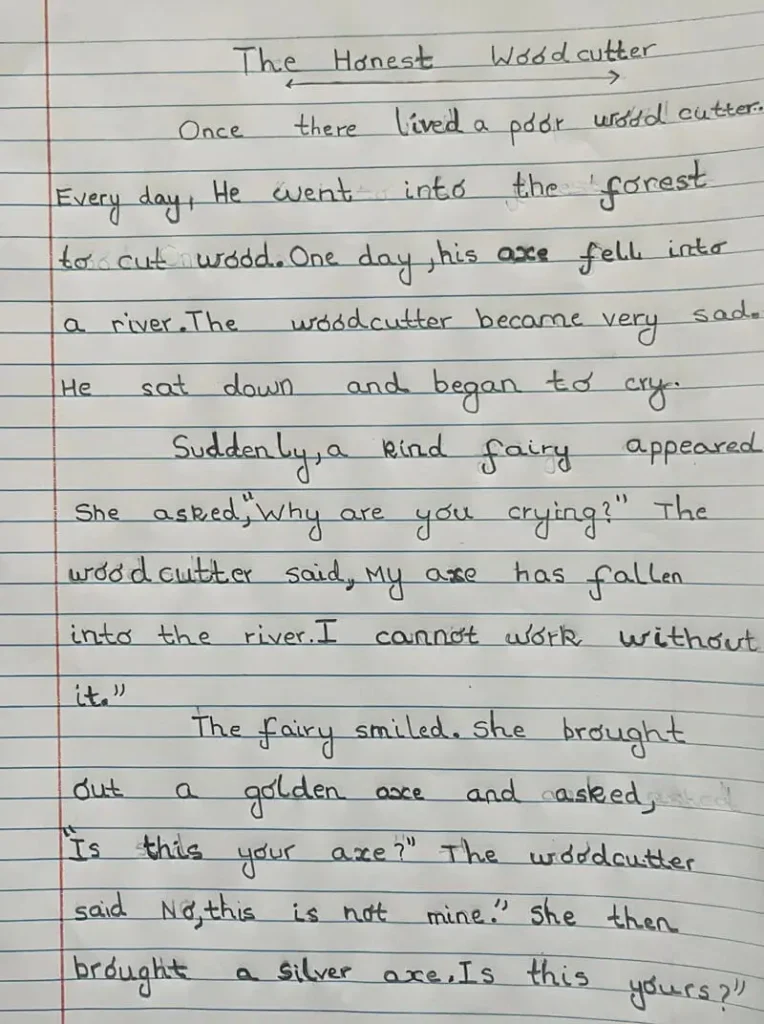 The Honest Woodcutter
Once there lived a poor wood cutter.
Every day, He went into the forest
to cut wood. One day, his axe fell into
a river. The woodcutter became very sad.
He sat down and began to cry.
Suddenly, a kind fairy appeared
She asked, "Why are you crying?" The
wood cutter said, My axe has fallen
into the river. I cannot work without
it."
The fairy smiled. She brought
out a golden axe and asked,
"Is this your axe?" The woodcutter
said No, this is not mine." She then
brought a silver axe. Is this yours?"